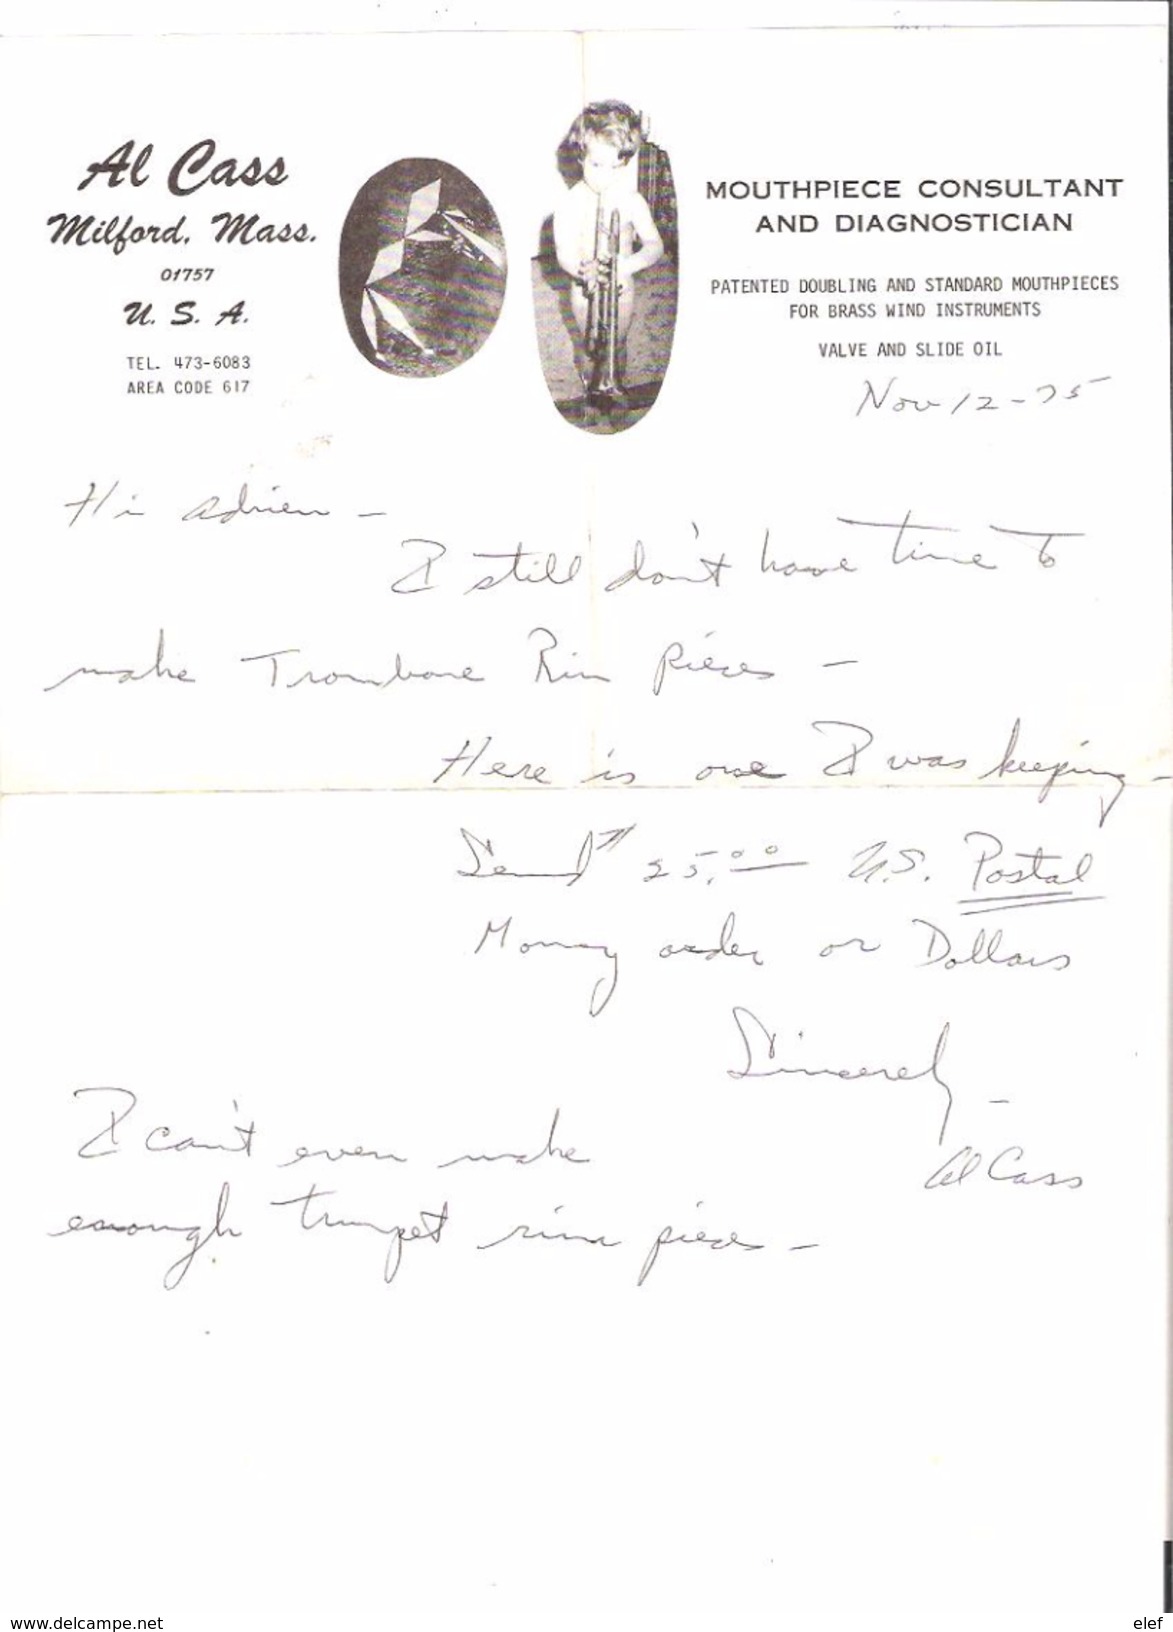 Al Cass
Milford, Mass.
01757
U. S. A.
TEL. 473-6083
AREA CODE 617
MOUTHPIECE CONSULTANT
AND DIAGNOSTICIAN
PATENTED DOUBLING AND STANDARD MOUTHPIECES
FOR BRASS WIND INSTRUMENTS
VALVE AND SLIDE OIL
Nov 12-75
Hi Adrien -
I still don't have time to
make Trombone Rim pieces -
Here is one I was keeping -
Send 25.00 U.S. Postal
Money order or Dollars
Sincerely -
Al Cass
I can't even make
enough trumpet rim pieces -
www.delcampe.net
elef